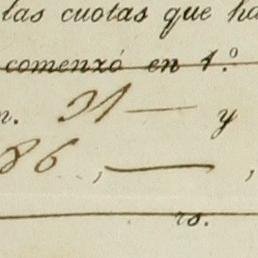 las cuotas que ha
comenzó en 1.º
n. 31 — y
86, — ,
rs.